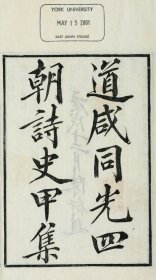 YORK UNIVERSITY
MAY 15 2001
EAST ASIAN STUDIES
道咸同光四
朝詩史甲集